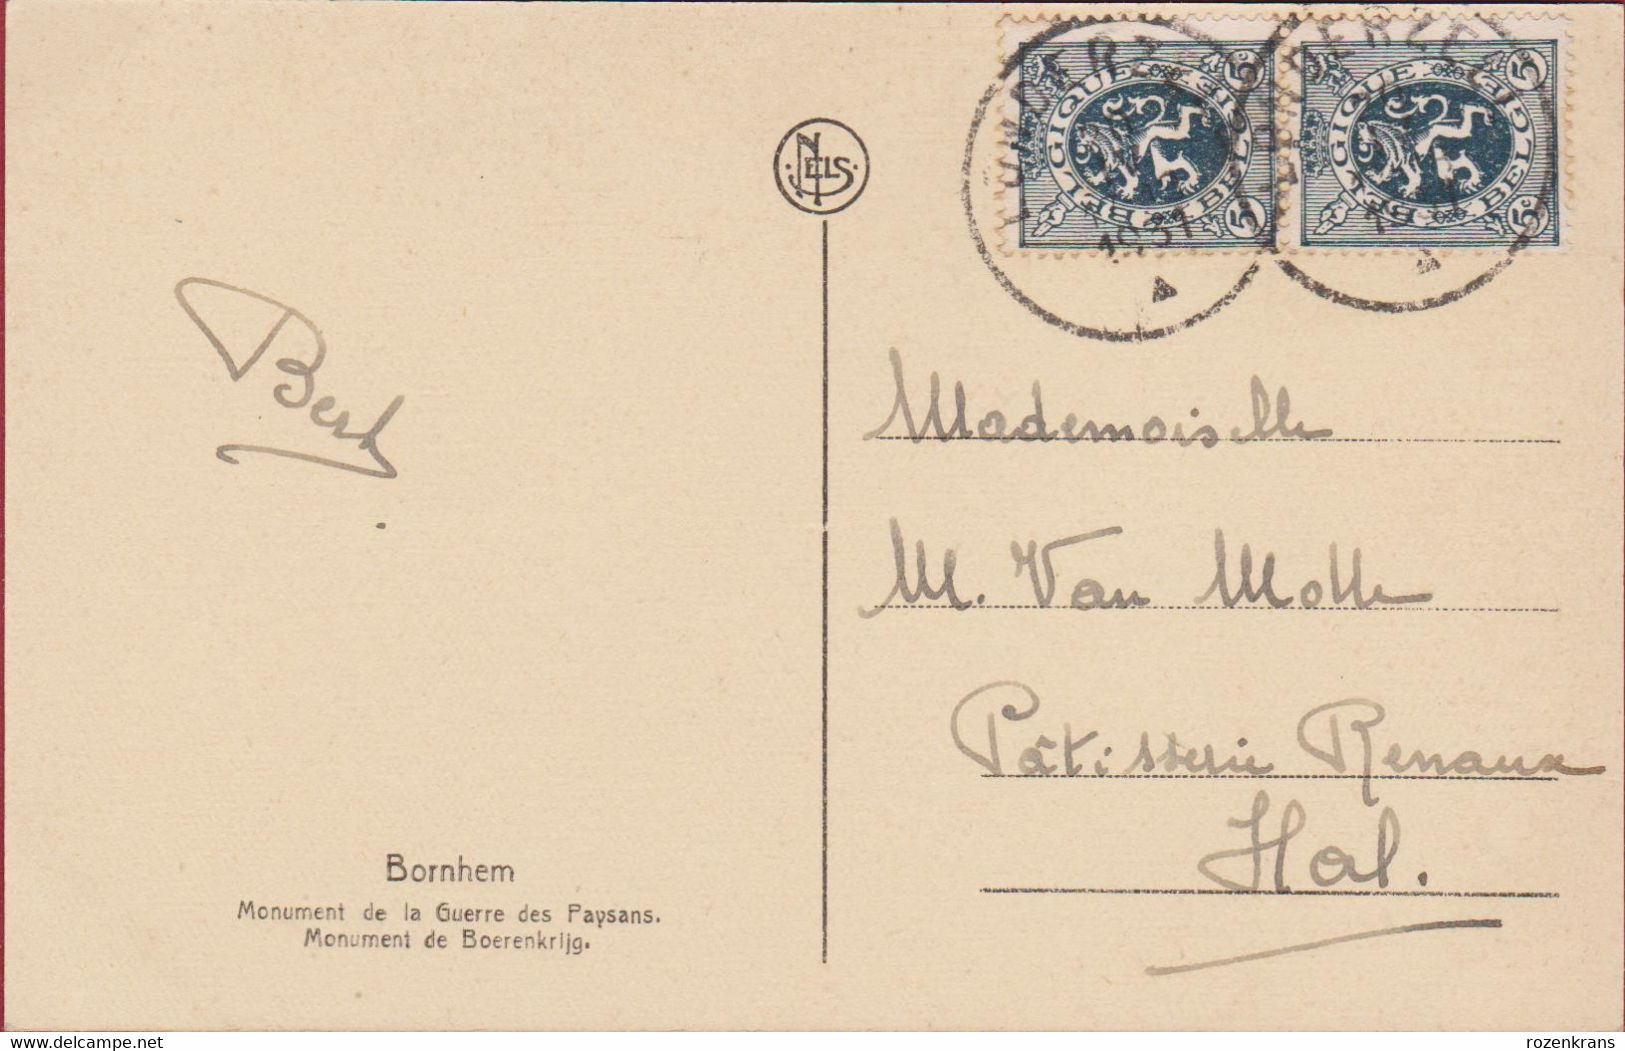 NELS
BELGIQUE BELGIË
5c
5c
BELGIQUE BELGIË
5c
5c
1931
Bert
Mademoiselle
M. Van Molle
Pâtisserie Renaux
Hal.
Bornhem
Monument de la Guerre des Paysans.
Monument de Boerenkrijg.
delcampe.net
rozenkrans